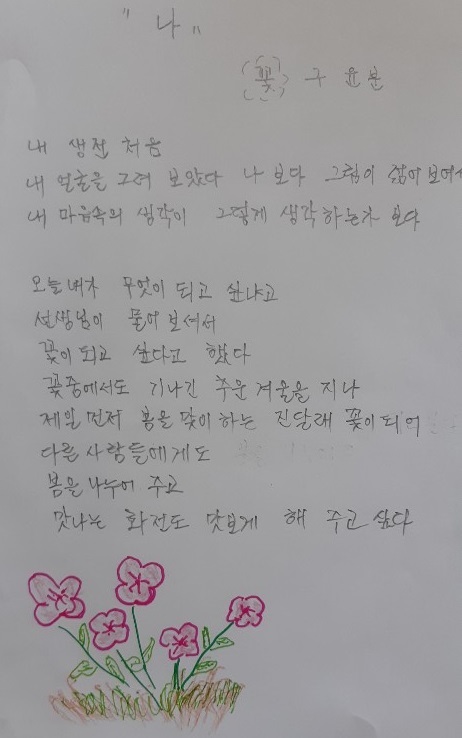 "나"
(꽃) 구윤분
내 생전 처음
내 얼굴을 그려 보았다 나 보다 그림이 젊어 보여서
내 마음속의 생각이 그렇게 생각하는가 보다
오늘 내가 무엇이 되고 싶냐고
선생님이 물어 보셔서
꽃이 되고 싶다고 했다
꽃중에서도 기나긴 추운 겨울을 지나
제일 먼저 봄을 맞이 하는 진달래 꽃이 되어
다른 사람들에게도
봄을 나누어 주고
맛나는 화전도 맛보게 해 주고 싶다